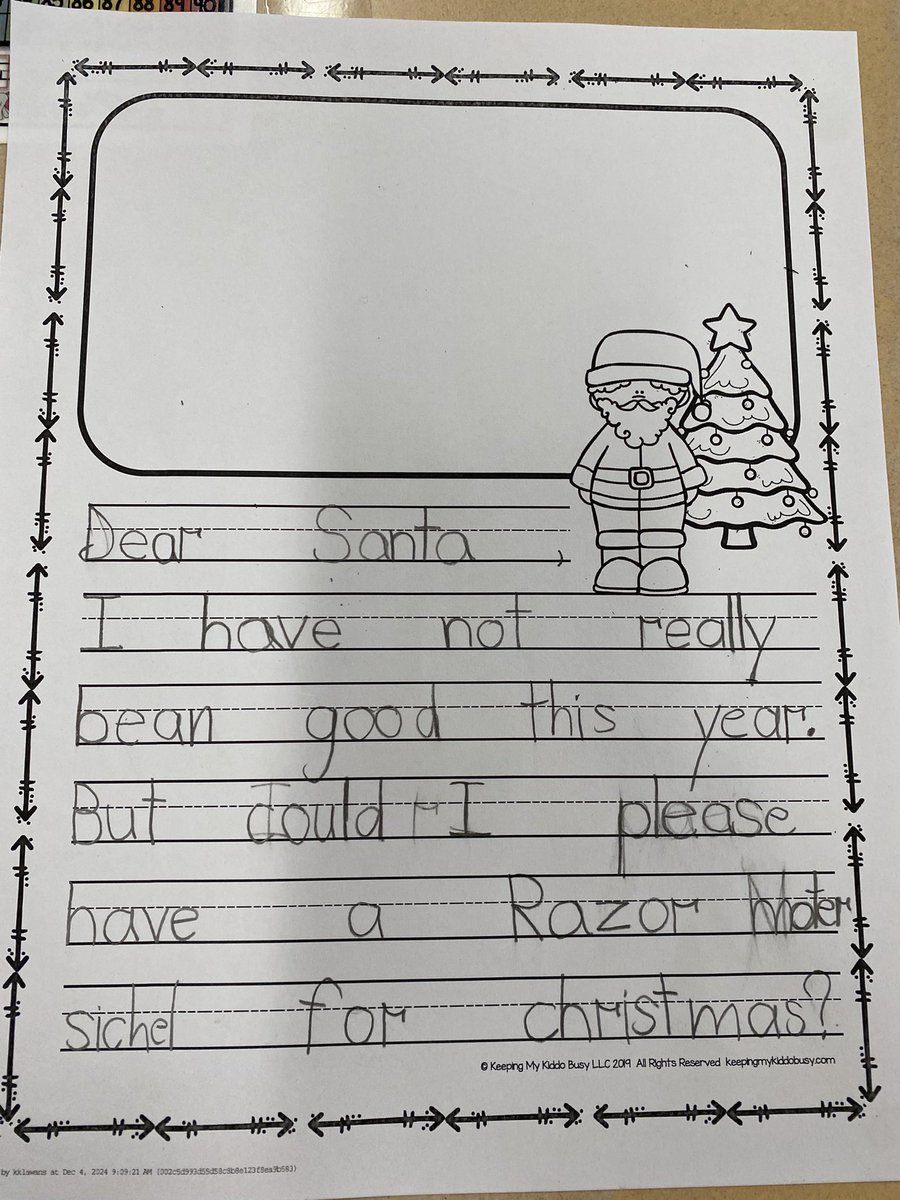 85 86 87 88 89 90
Dear Santa,
I have not really
bean good this year.
But could I please
have a Razor Moter
sichel for christmas?
© Keeping My Kiddo Busy LLC 2019 All Rights Reserved keepingmykiddobusy.com
by kklawans at Dec 4, 2024 9:09:21 AM